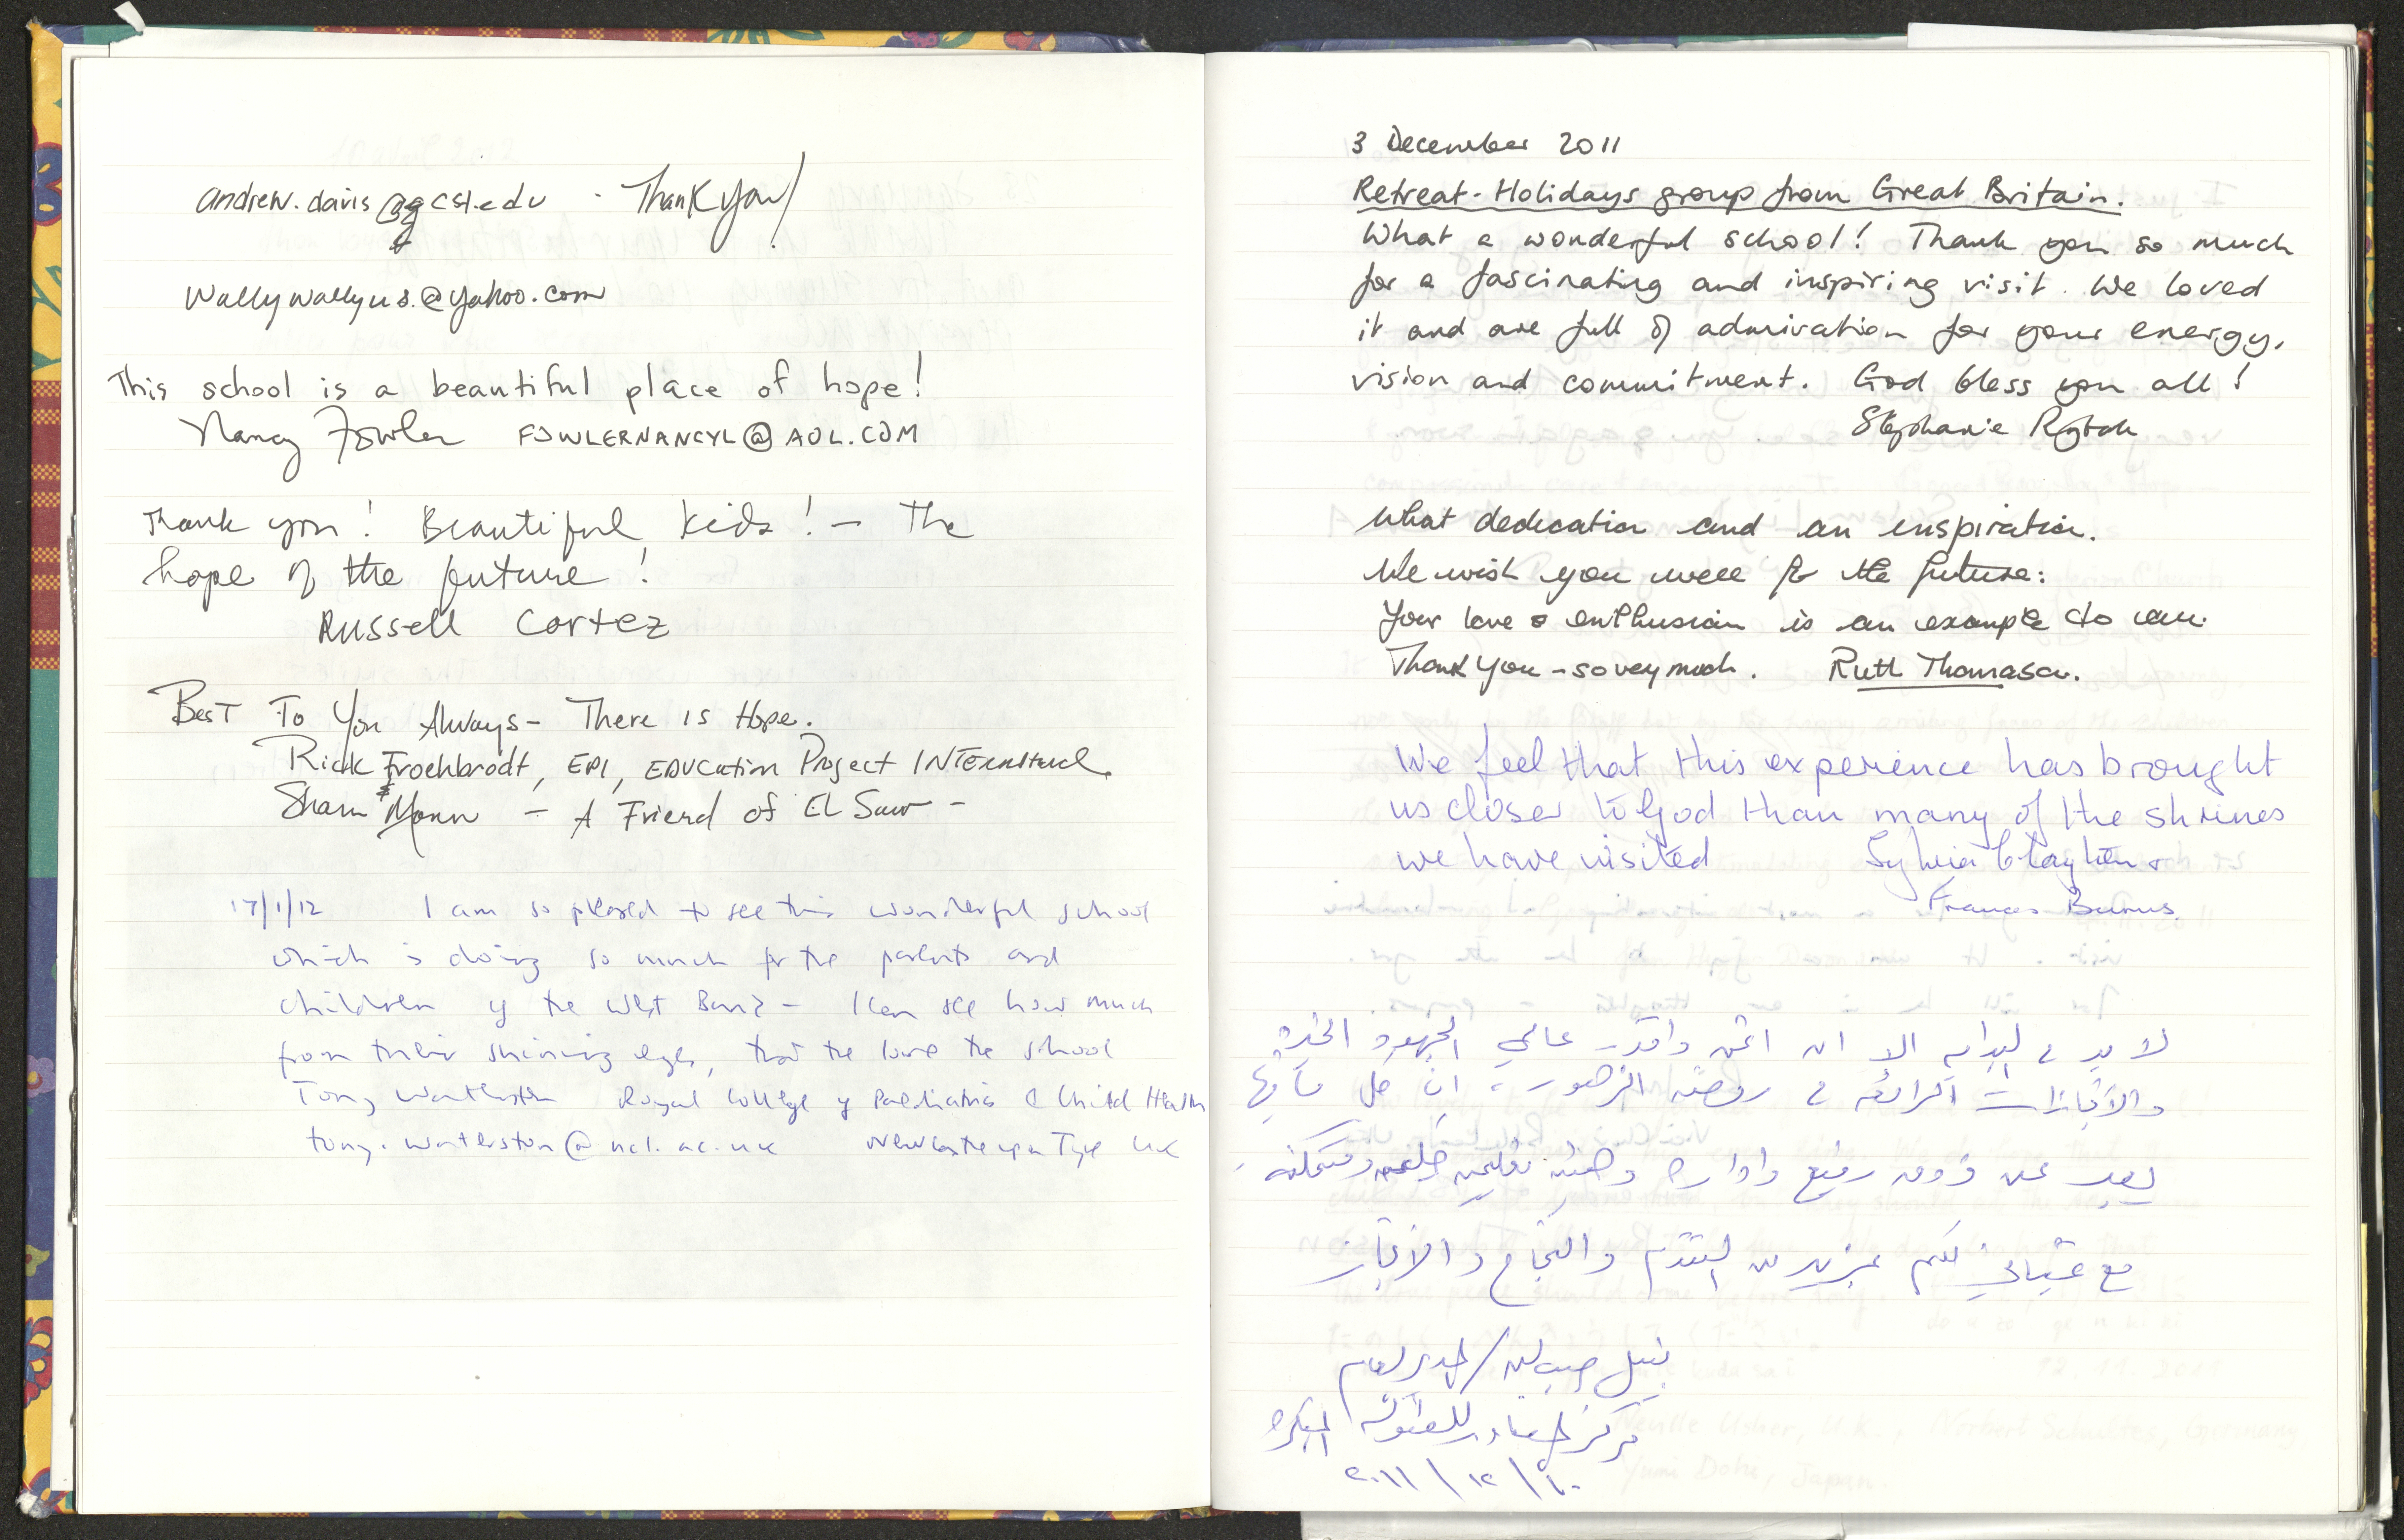 andrew.davis@gcsl.edu - Thank you!
wallywallyus.@yahoo.com
This school is a beautiful place of hope!
Nancy Fowler FOWLERNANCYL@AOL.COM
Thank you! Beautiful kids! - The
hope of the future!
Russell Cortez
Best To You Always - There is Hope.
Rick Froehbrodt, EPI, EDUCation Project INTernational
& Sham Monn - A Friend of El Saw -
17/1/12 I am so pleased to see this wonderful school
which is doing so much for the parents and
children of the West Bank - I can see how much
from their shining eyes, that the love the school
Tony Waterston Royal College of Paediatrics & Child Health
tony.waterston@ncl.ac.uk Newcastle upon Tyne UK
3 December 2011
Retreat-Holidays group from Great Britain.
What a wonderful school! Thank you so much
for a fascinating and inspiring visit. We loved
it and are full of admiration for your energy,
vision and commitment. God bless you all!
Stephanie
What dedication and an inspiration.
We wish you well for the future:
Your love & enthusiasm is an example to all.
Thank you - so very much. Ruth Thomason.
We feel that this experience has brought
us closer to God than many of the shrines
we have visited Sylvia Clayton &
Frances Burns.
لا بد في البداية الا ان اثمن واقدر عالي الجهود الخيرة
والانجازات الرائعة في روضة الزهور، ان كل ما فيها
يعبر عن ذوق رفيع وادارة وهيئة تعليمية
مع تمنياتي لكم بمزيد من التقدم والنجاح والانجاز
نبيل / المدير العام
مركز المصادر للطفولة المبكرة
٢٠١١/١٢/